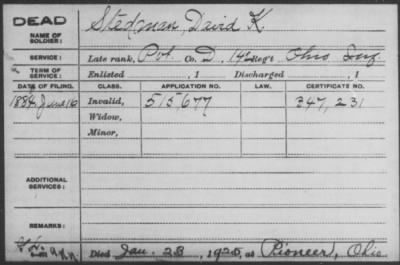 DEAD
NAME OF SOLDIER: Stedman David K.
SERVICE: Late rank, Pvt. Co. D, 14" Reg't Ohio Inf.
TERM OF SERVICE: Enlisted , 1 Discharged , 1
DATE OF FILING. CLASS. APPLICATION NO. LAW. CERTIFICATE NO.
1884 June 16 Invalid, 515,677 347,231
Widow,
Minor,
ADDITIONAL SERVICES:
REMARKS:
Died Jan. 23, 1925, at Pioneer, Ohio